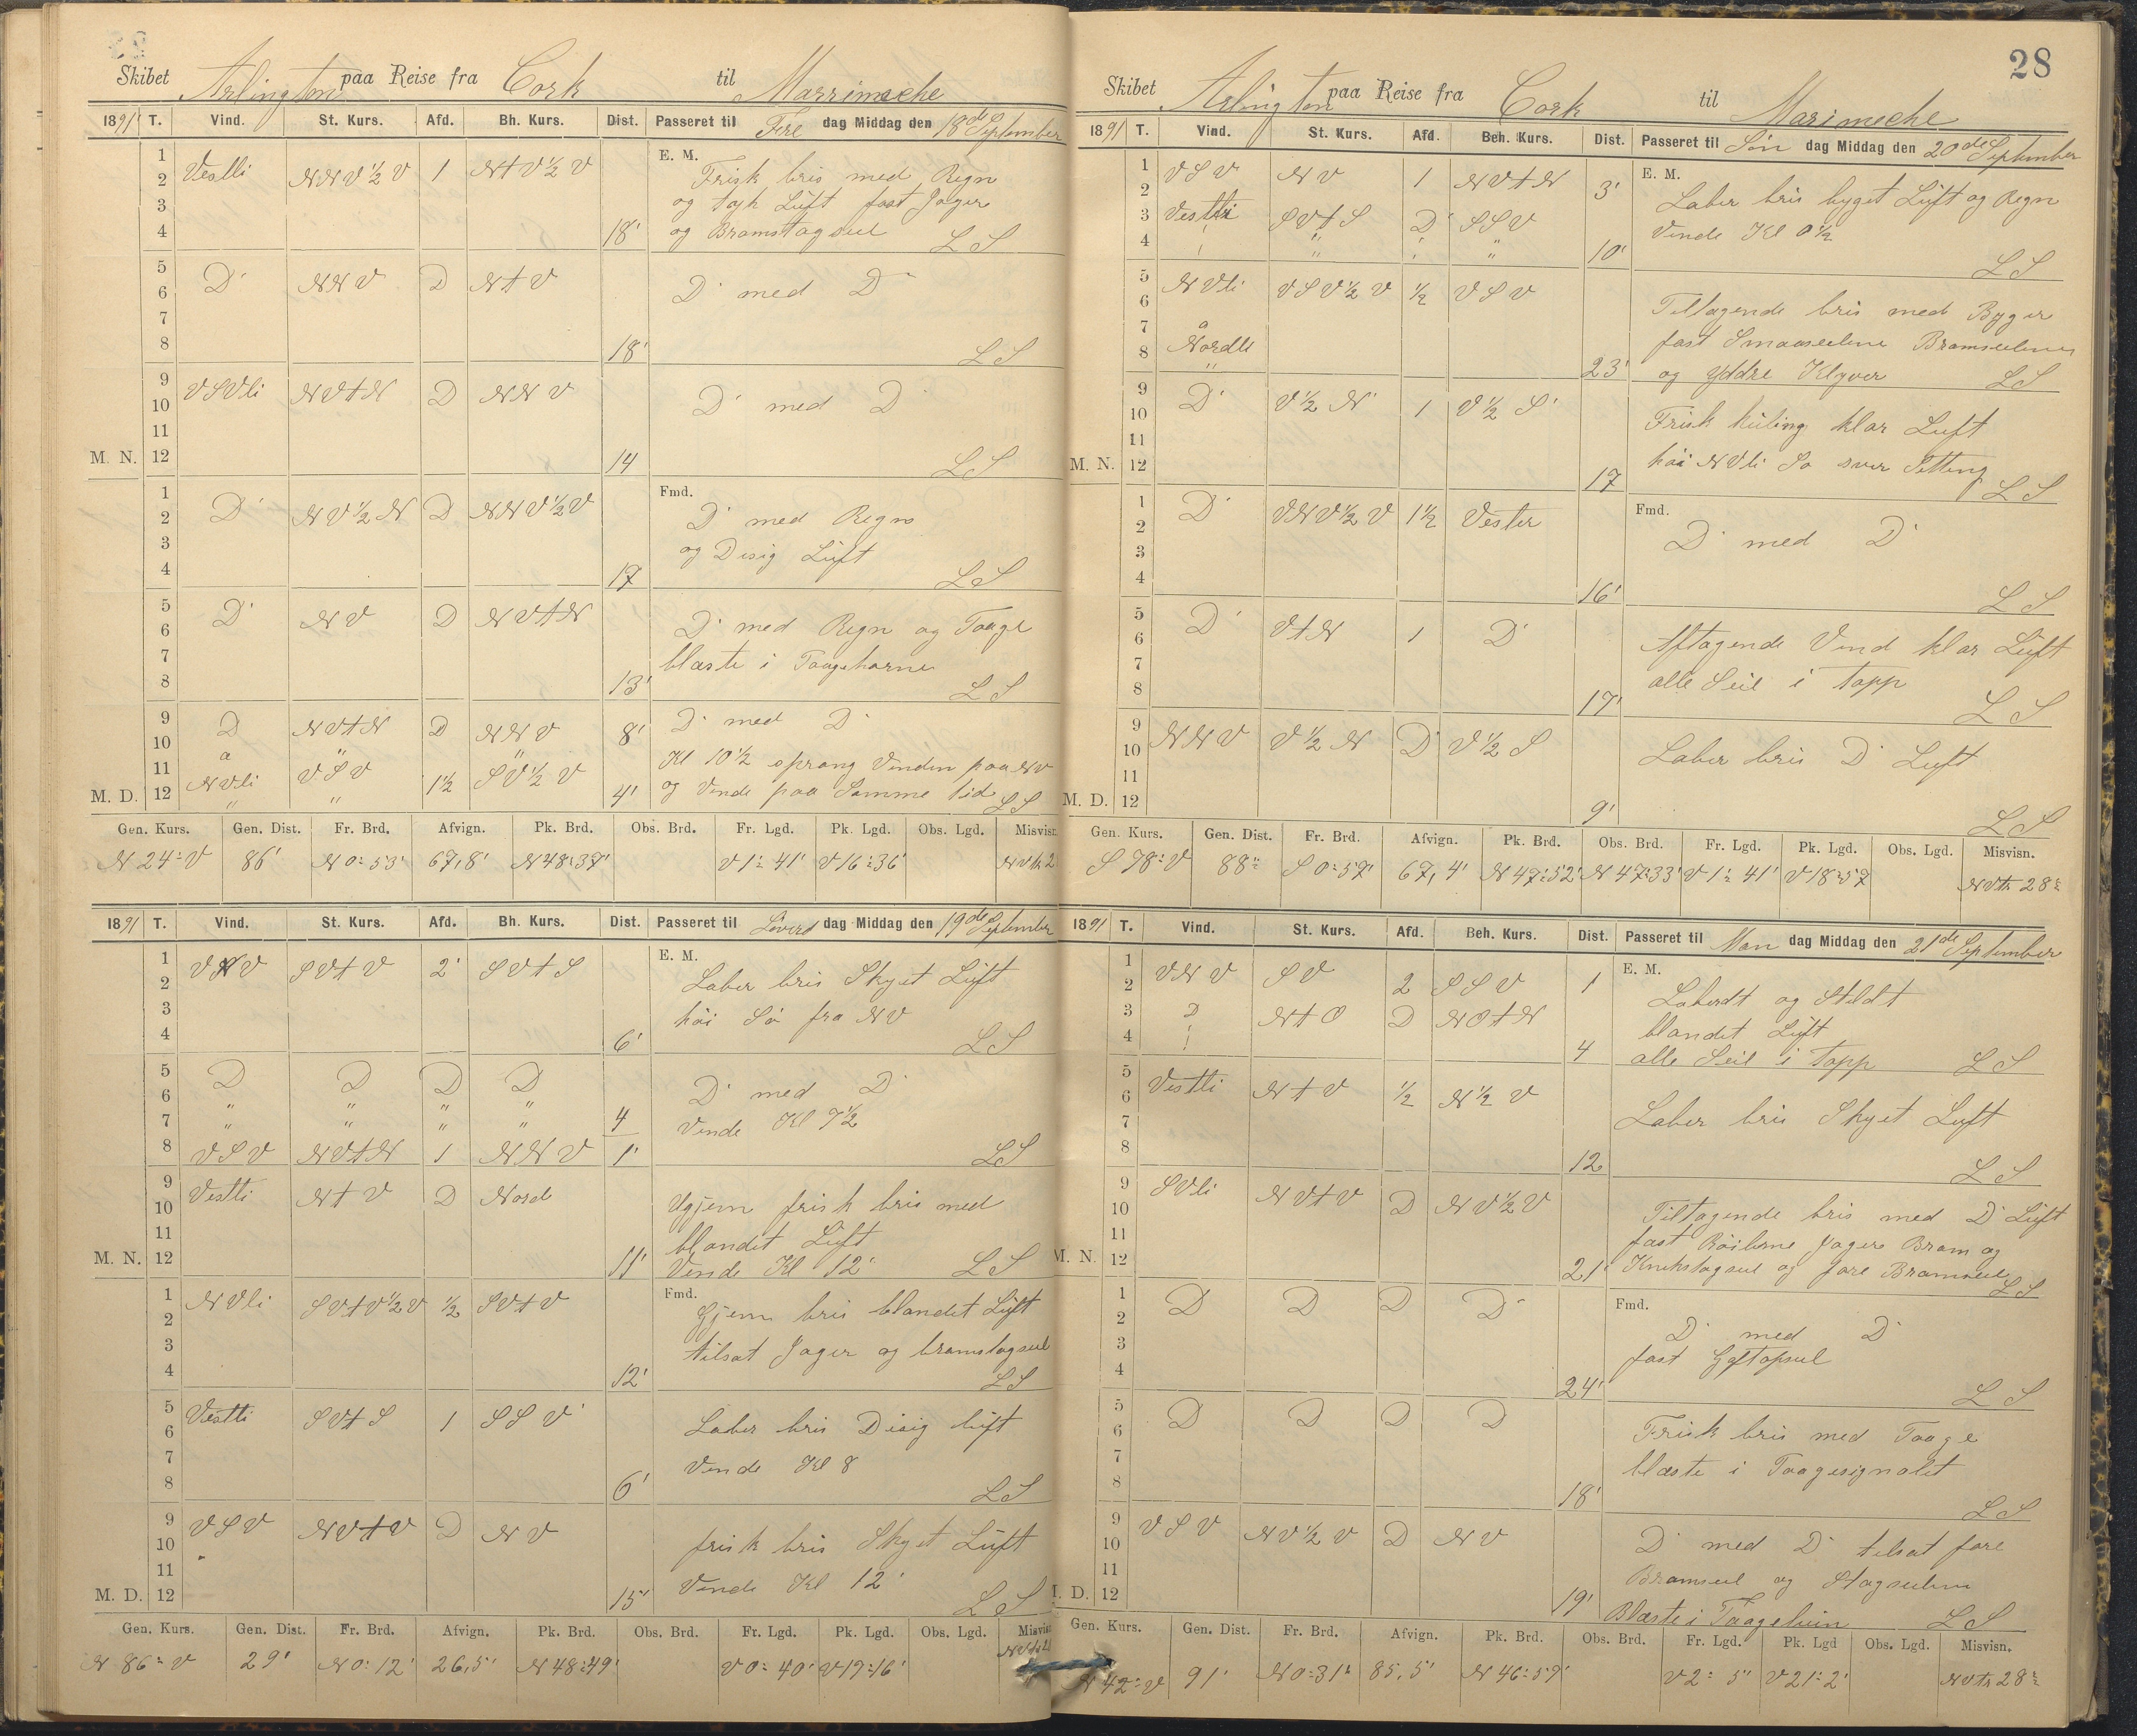 Skibet Arlington paa Reise fra Cork til Marrimeche
1891 T. Vind. St. Kurs. Afd. Bh. Kurs. Dist. Passeret til Fre dag Middag den 18de September
E. M.
1
2 Vestli NNV½V 1 NtV½V Frisk bris med Regn
3 og tyk Lüft fast Jager
4 18' og Bramstagseil LS
5
6 D' NNV D NtV D' med D'
7
8 18' LS
9
10 VSVli NVtN D NNV D' med D'
11
M. N. 12 14 LS
Fmd.
1
2 D' NV½N D NNV½V D' med Regn
3 og Disig Lüft
4 17 LS
5
6 D' NV D NVtN D' med Regn og Taage
7 blæste i Taagehorne
8 13' LS
9 D NVtN D NNV 8' D' med D'
10 a " " Kl 10½ sprang Vinden paa NV
11 NVli VSV 1½ SV½V og Vende paa Samme tid
M. D. 12 " " 4' LS
Gen. Kurs. Gen. Dist. Fr. Brd. Afvign. Pk. Brd. Obs. Brd. Fr. Lgd. Pk. Lgd. Obs. Lgd. Misvisn.
N 24° V 86' N 0° 53' 67,8' N 48° 37' V 1° 41' V 16° 36'
1891 T. Vind. St. Kurs. Afd. Bh. Kurs. Dist. Passeret til Lövers dag Middag den 19de September
E. M.
1 VNV SVtV 2' SVtS
2 Laber bris Skyet Lüft
3 höi Sö fra NV
4 6' LS
5 D D D D
6 " " " " D' med D'
7 " " " " 4 Vende Kl 7½
8 VSV NVtN 1 NNV 1' LS
9 Vestli NtV D Nord
10 Ujjem frisk bris med
11 blandet Lüft
M. N. 12 11' Vende Kl 12' LS
Fmd.
1 NVli SVtV½V ½ SVtV
2 Gjem bris blandet Lüft
3 tilsat Jager og bramstagseil
4 12' LS
5 Vestli SVtS 1 SSV'
6 Laber bris Disig lüft
7 Vende Kl 8
8 6' LS
9 VSV NVtV D NV
10 frisk bris Skyet Lüft
11 Vende Kl 12'
M. D. 12 15' LS
Gen. Kurs. Gen. Dist. Fr. Brd. Afvign. Pk. Brd. Obs. Brd. Fr. Lgd. Pk. Lgd. Obs. Lgd. Misvisn.
N 86° V 29' N 0° 12' 26,5' N 48° 49' V 0° 40' V 17° 16'
28
Skibet Arlington paa Reise fra Cork til Marimeche
1891 T. Vind. St. Kurs. Afd. Beh. Kurs. Dist. Passeret til Søn dag Middag den 20de September
E. M.
1 VSV NV 1 NVtN
2 3' Laber bris byget Lüft og Regn
3 Vestli SVtS D' SSV Vende Kl 0½
4 " " " " 10' LS
5 NVli VSV½V ½ VSV
6 Tiltagende bris med Byger
7 a fast Smaaseilene Bramseilene
8 Nordli 23' og Yddre Klyver LS
9
10 D' V½N' 1 V½S' Frisk küling klar Luft
11 höi NVli Sö svær Setting
M. N. 12 17 LS
Fmd.
1
2 D' VNV½V 1½ Vester D' med D'
3
4 16' LS
5
6 D' VtN 1 D' Aftagende Vind klar Lüft
7 alle Seil i Topp
8 17' LS
9
10 NNV V½N D' V½S Laber bris D' Luft
11
M. D. 12 9' LS
Gen. Kurs. Gen. Dist. Fr. Brd. Afvign. Pk. Brd. Obs. Brd. Fr. Lgd. Pk. Lgd. Obs. Lgd. Misvisn.
S 78° V 88" S 0° 57' 67,4' N 47° 52' N 47° 33' V 1° 41' V 18° 57 NVtn 28°
1891 T. Vind. St. Kurs. Afd. Beh. Kurs. Dist. Passeret til Man dag Middag den 21de September
E. M.
1 VNV SV 2 SSV 1
2 Laberdt og Stildt
3 D NtO D NOtN blandet Lüft
4 4 alle Seil i Topp LS
5
6 Vestli NtV ½ N½V
7 Laber bris Skyet Luft
8 12 LS
9 SVli NVtV D NV½V
10 Tiltagende bris med D' Lüft
11 fast Röilerne Jager Bram og
M. N. 12 21' Krukstagseil og fore Bramseil LS
Fmd.
1 D D D D'
2 D' med D'
3 fast Gaftopseil
4 24' LS
5 D D D D
6 Frisk bris med Taage
7 blæste i Taagesignalet
8 18' LS
9 VSV NV½V D NV
10 D' med D' tilsat fore
11 Bramseil og Stagseilene
M. D. 12 19' Blæste i Taageluren LS
Gen. Kurs. Gen. Dist. Fr. Brd. Afvign. Pk. Brd. Obs. Brd. Fr. Lgd. Pk. Lgd Obs. Lgd. Misvisn.
42° V 91' N 0° 31' 85,5' N 46° 59' V 2° 5" V 21° 2' NVtn 28°